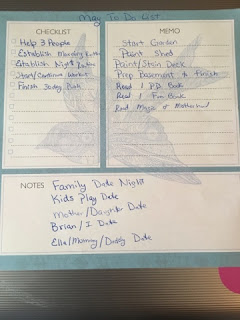 May To Do List
CHECKLIST
Help 3 People
Establish Morning Routine
Establish Night Routine
Start/Continue Workout
Finish
MEMO
Start Garden
Paint Shed
Paint/Stain Deck
Prep Basement to Finish
Read 1 P.D. Book
Read 1 Fun Book
Read Magic of Motherhood
NOTES
Family Date Night
Kids Play Date
Mother/Daughter Date
Brian/I Date
Ella/Mommy/Daddy Date